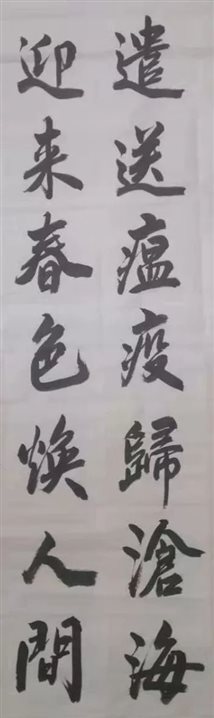 遣送瘟疫歸滄海
迎来春色焕人間